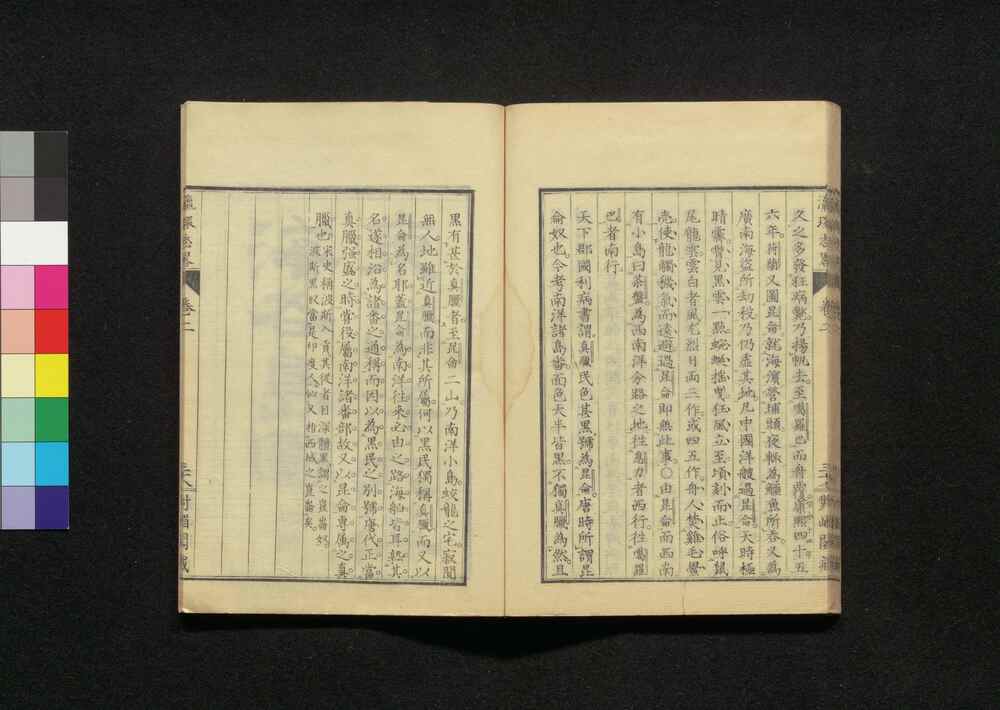 久之多發狂病斃乃揚帆去至噶羅巴而舟覆康熙四十五
六年荷蘭又圖昆侖就海濱營埔頭夜輒為鱷魚所吞又為
廣南海盜所劫殺乃仍虛其地凡中國洋艘過昆侖天時極
晴霽瞥見黑雲一點蜿蜒搖曳狂風立至頃刻而止俗呼鼠
尾龍雲雲白者風尤烈日兩三作或四五作舟人焚雞毛鱟
壳使龍觸穢氣而遠避過昆侖即無此事○由昆侖而西南
有小島曰茶盤為西南洋分路之地往息力者西行往噶羅
巴者南行
天下郡國利病書謂真臘民色甚黑號為昆侖唐時所謂昆
侖奴也今考南洋諸島番面色大半皆黑不獨真臘為然且
瀛環志畧 卷二
黑有甚於真臘者至昆侖二山乃南洋小島蛟龍之宅寂閴
無人地雖近真臘而非其所屬何以黑民獨稱真臘而又以
昆侖為名耶蓋昆侖為南洋往來必由之路海舶皆耳熟其
名遂相沿為諸番之通稱而因以為黑民之別號唐代正當
真臘強盛之時嘗役屬南洋諸番部故又以昆侖專屬之真
臘也宋史稱波斯入貢其從者目深體黑謂之崑崙奴
波斯黑奴當是印度人以又相西域之崑崙矣
瀛環志畧 卷二